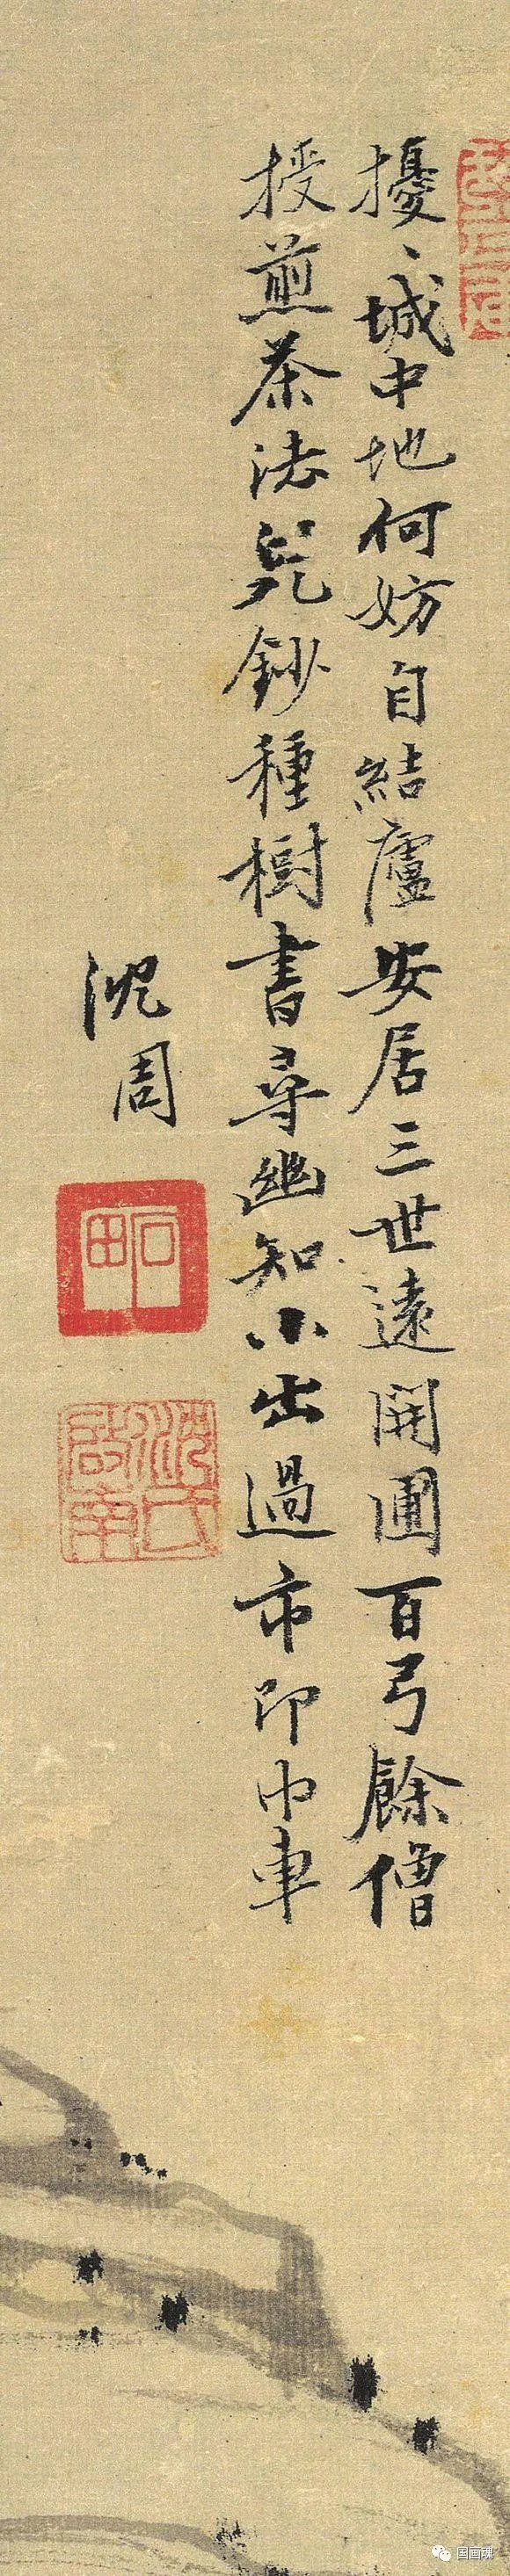 擾〻城中地何妨自結廬安居三世遠開圃百弓餘僧
授煎茶法兒鈔種樹書尋幽知小出過市即巾車
沈周
石田
沈氏啟南
国画